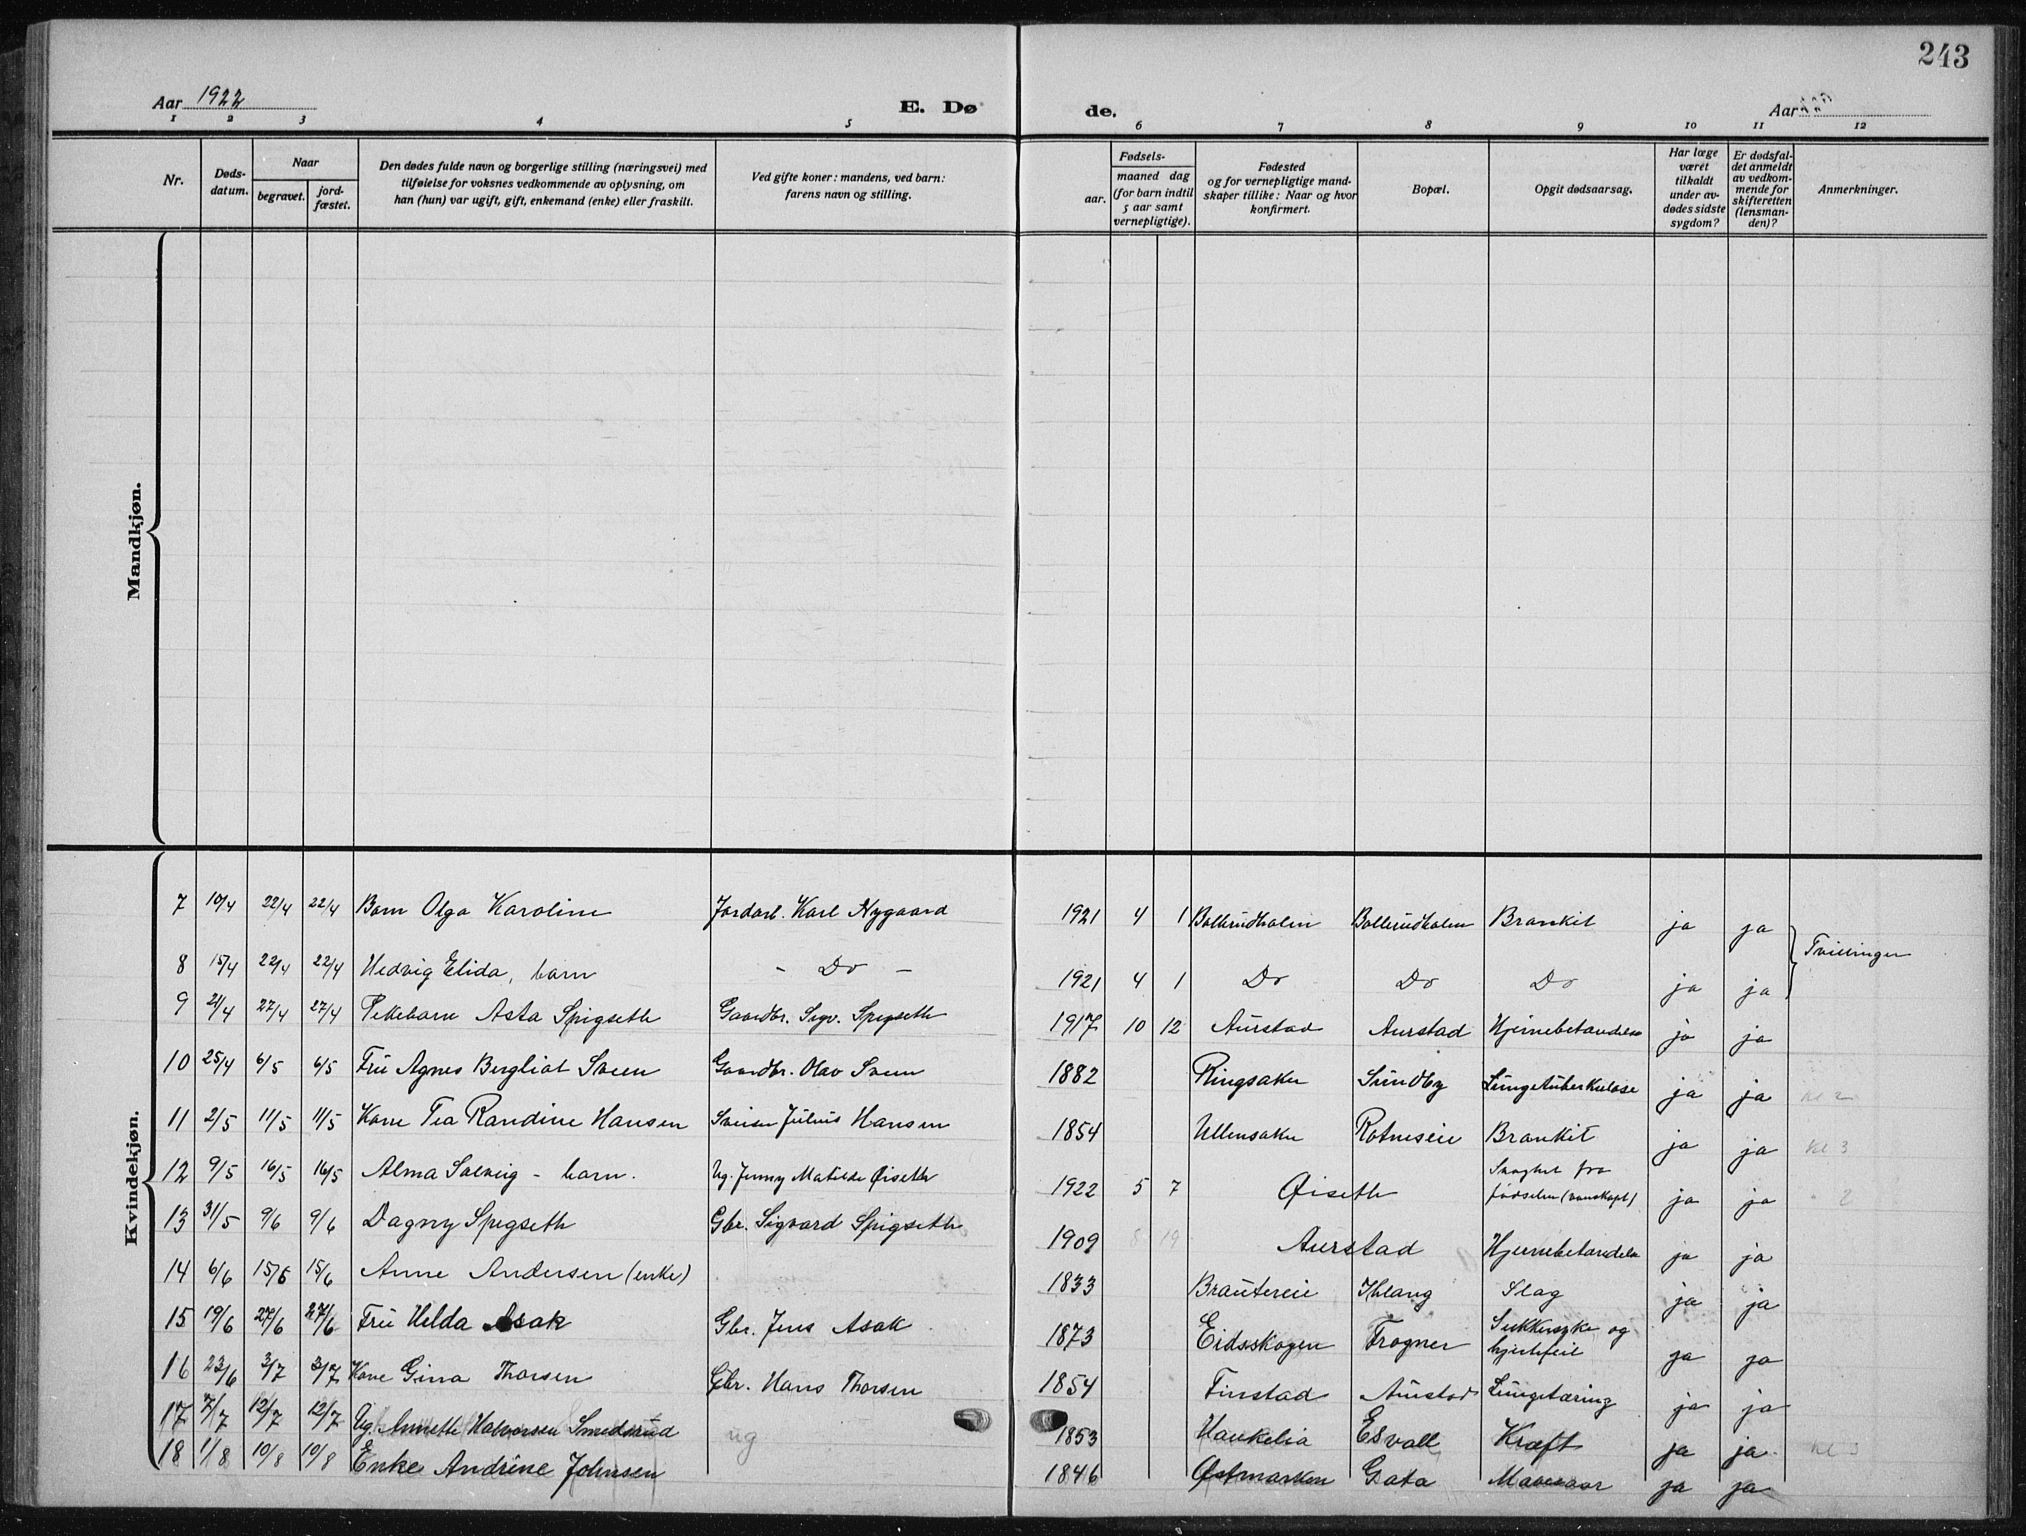 243
Aar 1922
E. Dø
de.
Aar
1 2 3 4 5 6 7 8 9 10 11 12
Nr.
Døds-
datum.
Naar
begravet.
jord-
fæstet.
Den dødes fulde navn og borgerlige stilling (næringsvei) med
tilføielse for voksnes vedkommende av oplysning, om
han (hun) var ugift, gift, enkemand (enke) eller fraskilt.
Ved gifte koner: mandens, ved barn:
farens navn og stilling.
Fødsels-
aar.
maaned dag
(for barn indtil
5 aar samt
vernepligtige).
Fødested
og for vernepligtige mand-
skaper tillike: Naar og hvor
konfirmert.
Bopæl.
Opgit dødsaarsag.
Har læge
været
tilkaldt
under av-
dødes sidste
sygdom?
Er dødsfal-
det anmeldt
av vedkom-
mende for
skifteretten
(lensman-
den)?
Anmerkninger.
Mandkjøn.
Kvindekjøn.
7 10/4 22/4 22/4 Barn Olga Karoline Jordarb. Karl Nygaard 1921 4 1 Bollerudholen Bollerudholen Brankit ja ja
Tvillinger
8 15/4 22/4 22/4 Hedvig Elida, barn - Do - 1921 4 1 Do Do Do ja ja
9 21/4 27/4 27/4 Pikebarn Asta Spigseth Gaardbr. Sigv. Spigseth 1917 10 12 Aurstad Aurstad Hjernebetændelse ja ja
10 25/4 6/5 6/5 Fru Agnes Bergliot Sveen Gaardbr. Olav Sveen 1882 Ringsaker Sundby Lungetuberkulose ja ja kl 2
11 2/5 11/5 11/5 Kone Tea Randine Hansen Sveiser Julius Hansen 1854 Ullensaker Rotneseie Brankit ja ja kl 3
12 9/5 16/5 16/5 Alma Solveig - barn. Ug. Jenny Matilde Øiseth 1922 5 7 Øiseth Svaghet fra
fødselen (vanskapt) ja ja " 2
13 31/5 9/6 9/6 Dagny Spigseth Gbr. Sigvard Spigseth 1909 8 19 Aurstad Hjernebetændelse ja ja
14 6/6 15/6 15/6 Anne Andersen (enke) 1833 Brautereie Ihlang Slag ja ja
15 19/6 27/6 27/6 Fru Helda Asak Gbr. Jens Asak 1873 Eidsskogen Frogner Sukkersyke og
hjertefeil ja ja
16 23/6 3/7 3/7 Kone Gina Thorsen Gbr. Hans Thorsen 1854 Finstad Aurstad Lungetæring ja ja
17 7/7 12/7 12/7 Ug. Annette Halvorsen Smedsrud ug 1853 Haukelia Esvall Kræft ja ja kl 3
18 1/8 10/8 10/8 Enke Andrine Johnsen 1846 Østmarken Gata Mavesaar ja ja